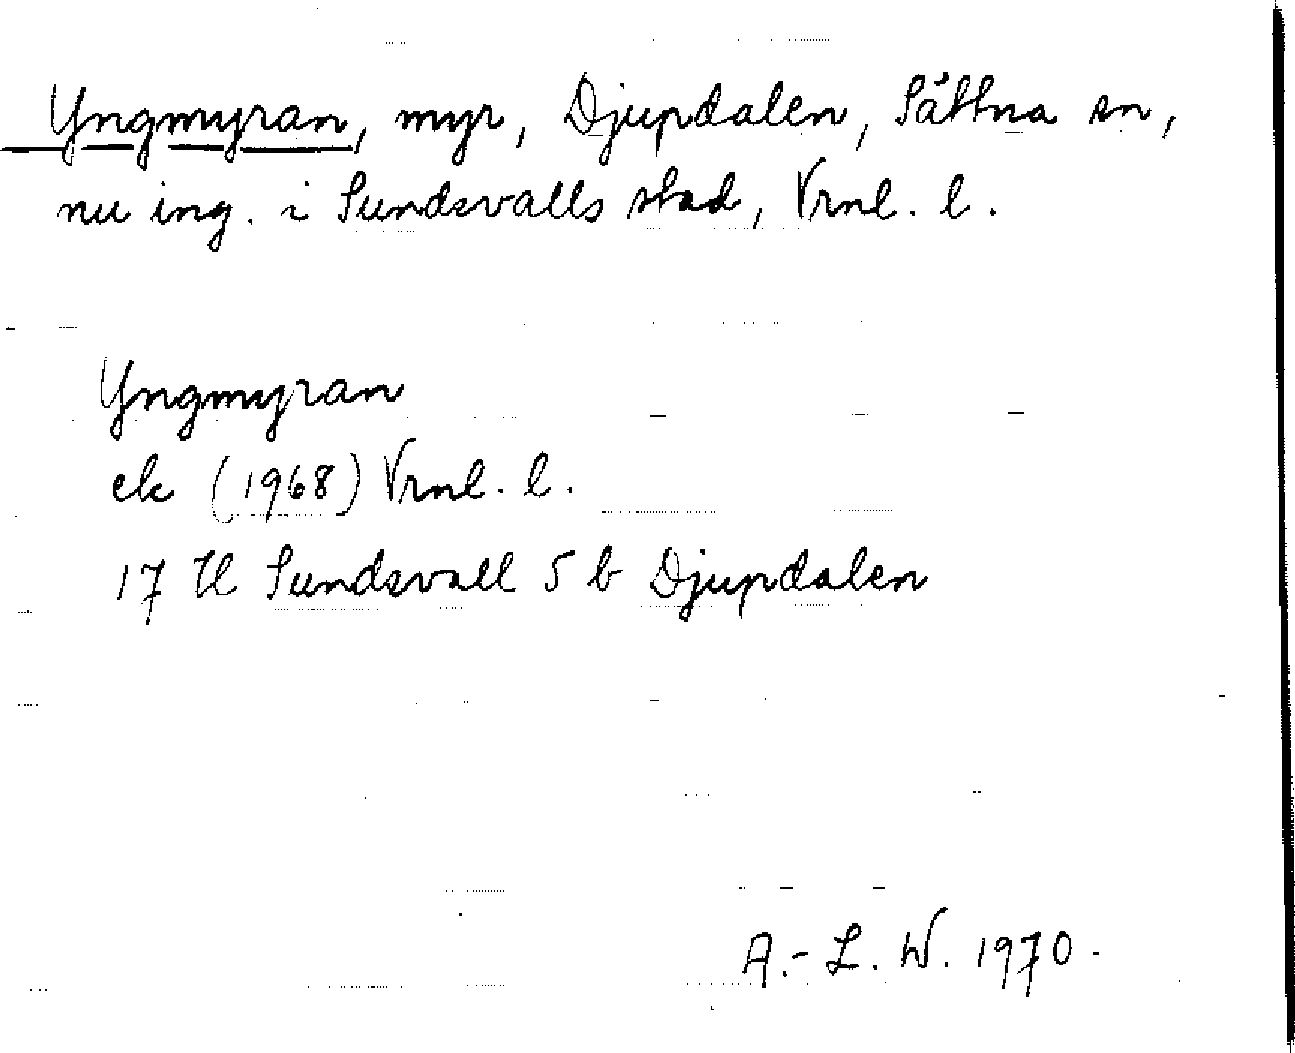 Yngmyran, myr, Djupdalen, Sättna sn,
nu ing. i Sundsvalls stad, Vrnl. l.
Yngmyran
ek (1968) Vrnl. l.
17 H Sundsvall 5 b Djupdalen
A.-L. W. 1970.